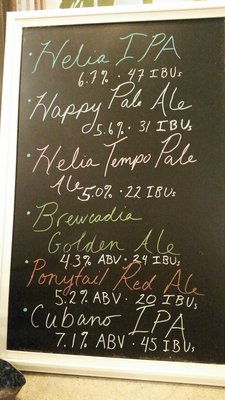 • Helia IPA
6.7% · 47 IBUs
• Happy Pale Ale
5.6% · 31 IBUs
• Helia Tempo Pale
Ale 5.0% · 22 IBUs
• Brewcadia
Golden Ale
4.3% ABV · 24 IBUs
• Ponytail Red Ale
5.2% ABV · 20 IBUs
• Cubano IPA
7.1% ABV · 45 IBUs